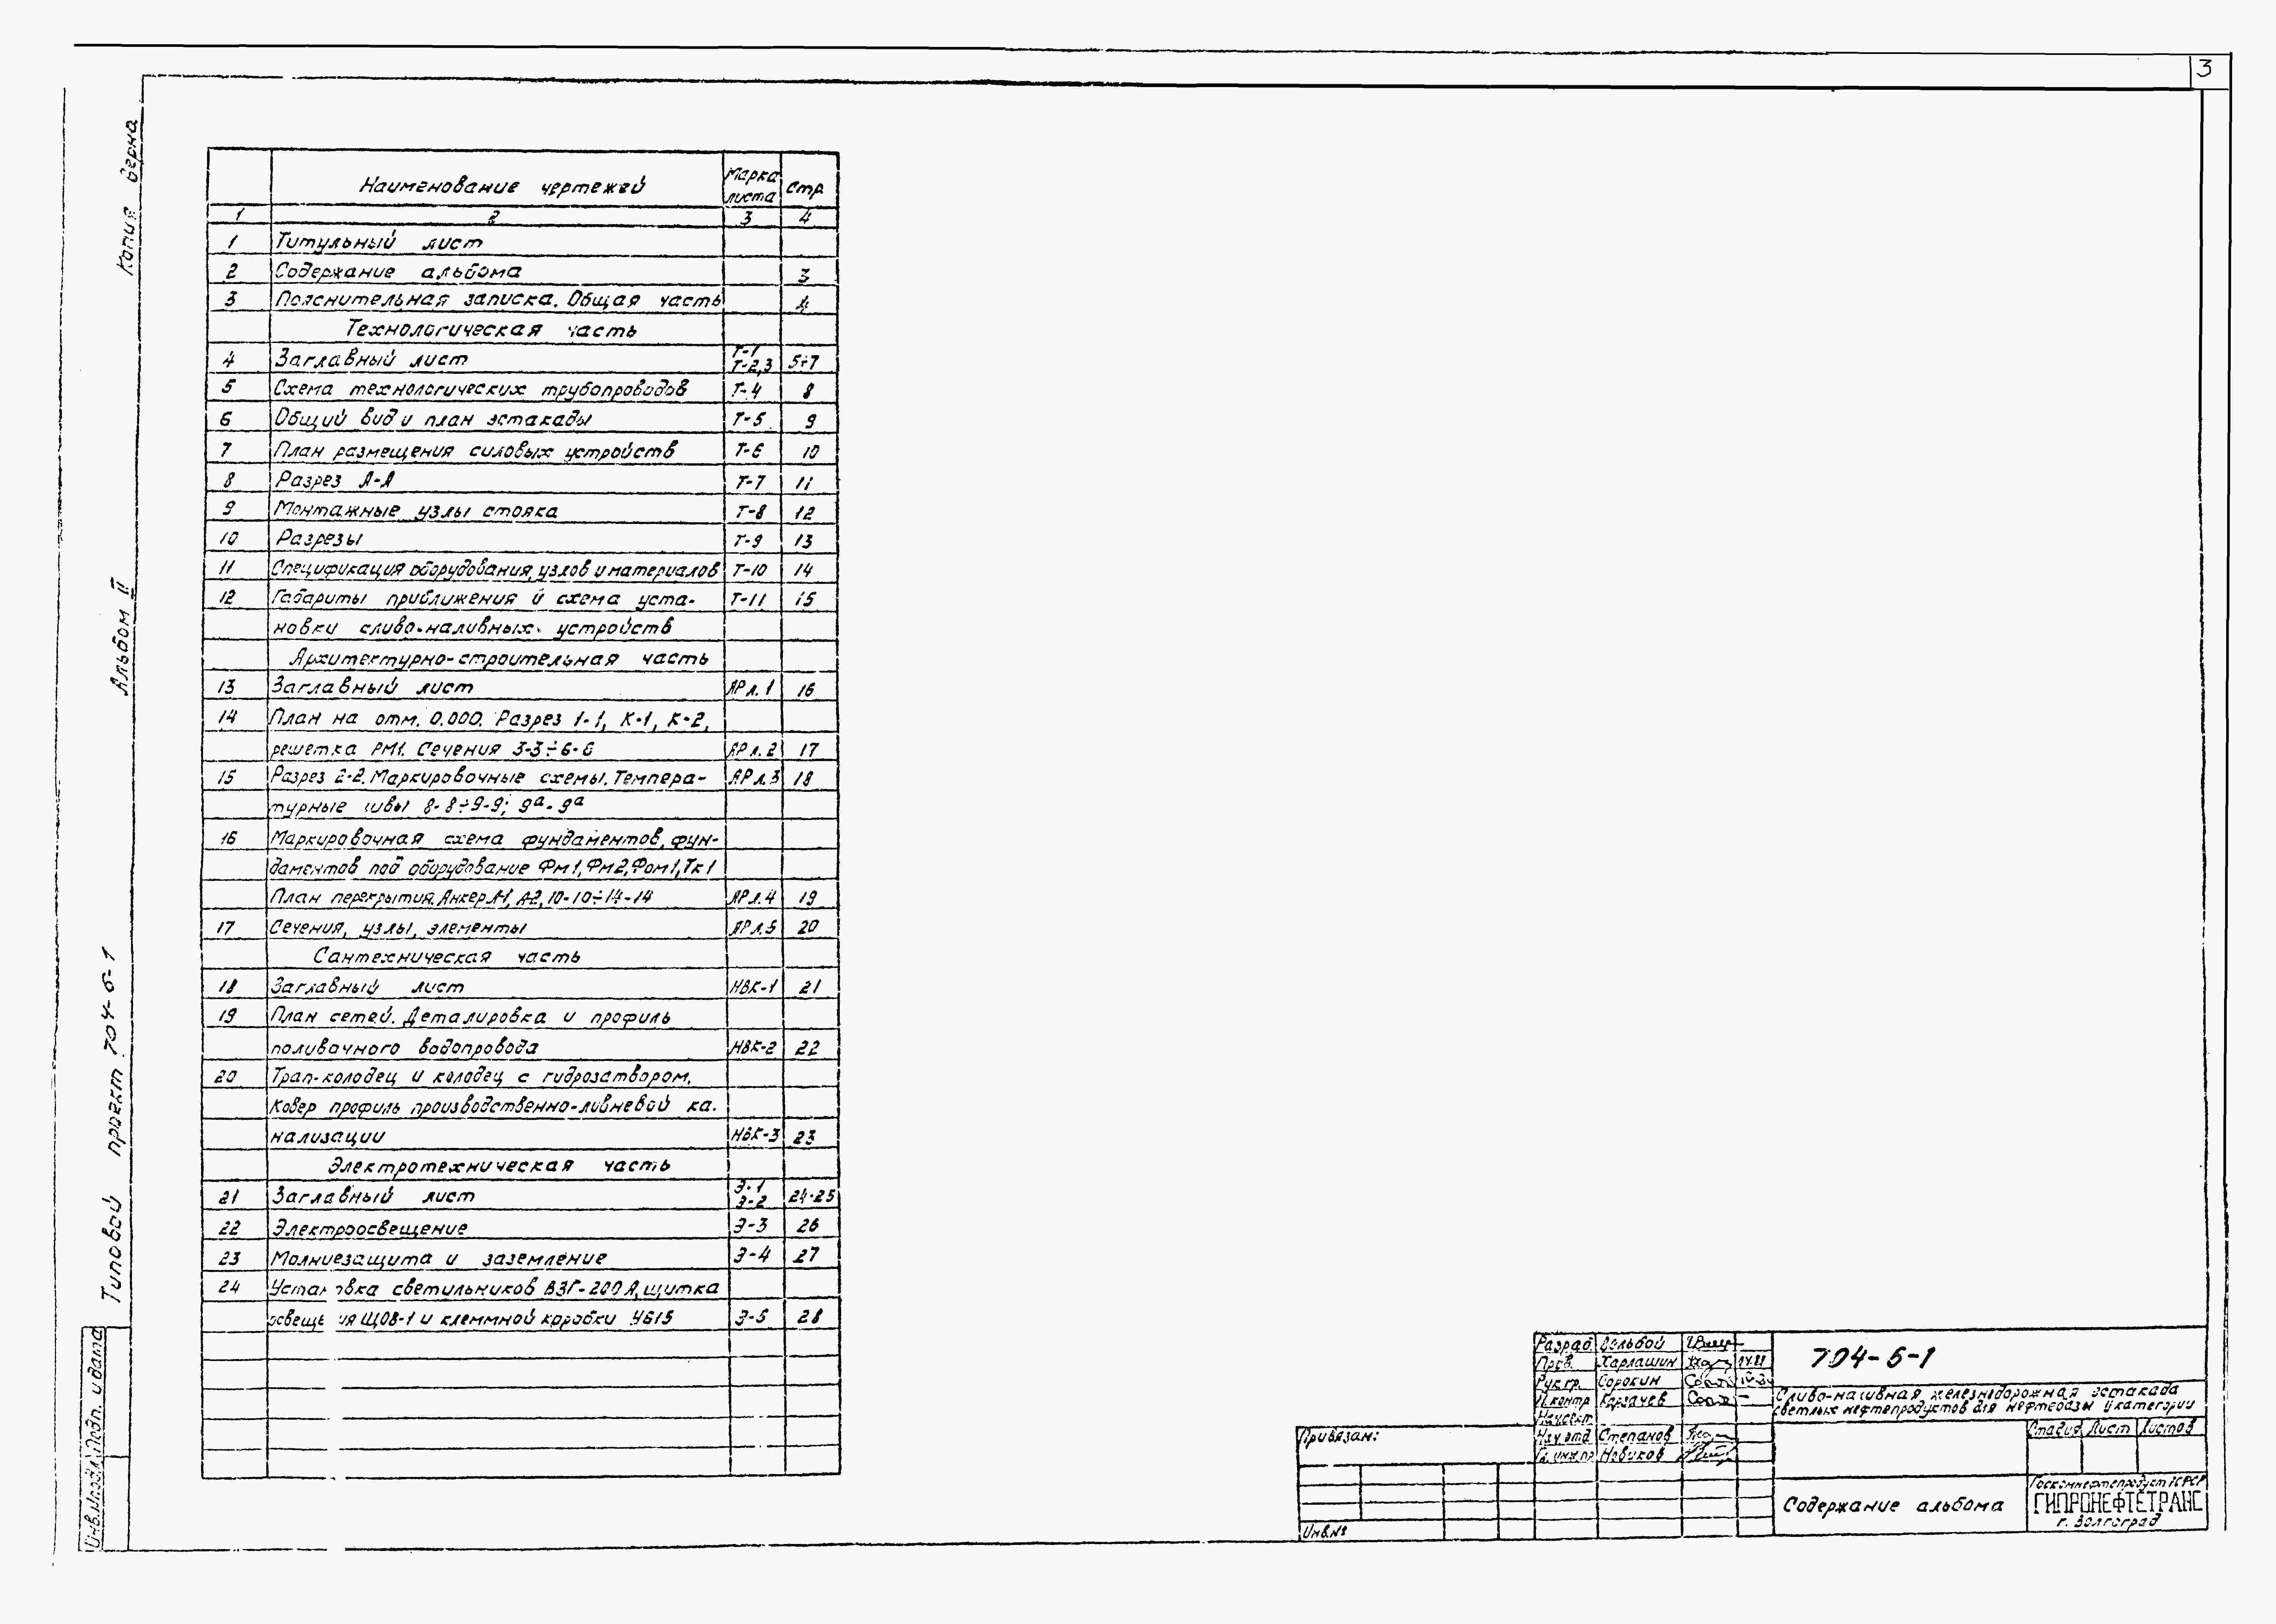 3
Копия верна
Альбом II
Типовой проект 704-5-1
Инв.№подл. Подп. и дата
Наименование чертежей Марка листа Стр
1 2 3 4
1 Титульный лист
2 Содержание альбома 3
3 Пояснительная записка. Общая часть 4
Технологическая часть
4 Заглавный лист Т-1 Т-2,3 5÷7
5 Схема технологических трубопроводов Т-4 8
6 Общий вид и план эстакады Т-5 9
7 План размещения силовых устройств Т-6 10
8 Разрез А-А Т-7 11
9 Монтажные узлы стояка Т-8 12
10 Разрезы Т-9 13
11 Спецификация оборудования, узлов и материалов Т-10 14
12 Габариты приближения и схема уста- Т-11 15
новки сливо-наливных устройств
Архитектурно-строительная часть
13 Заглавный лист АР л.1 16
14 План на отм. 0.000. Разрез 1-1, К-1, К-2,
решетка РМ1. Сечения 3-3÷6-6 АР л.2 17
15 Разрез 2-2. Маркировочные схемы. Темпера- АР л.3 18
турные швы 8-8÷9-9; 9а-9а
16 Маркировочная схема фундаментов, фун-
даментов под оборудование Фм1, Фм2, Фом1, Тк1
План перекрытия. Анкер А-1, А-2, 10-10÷14-14 АР л.4 19
17 Сечения, узлы, элементы АР л.5 20
Сантехническая часть
18 Заглавный лист НВК-1 21
19 План сетей. Деталировка и профиль
поливочного водопровода НВК-2 22
20 Трап-колодец и колодец с гидрозатвором.
Ковер профиль производственно-ливневой ка-
нализации НВК-3 23
Электротехническая часть
21 Заглавный лист Э-1 Э-2 24-25
22 Электроосвещение Э-3 26
23 Молниезащита и заземление Э-4 27
24 Установка светильников ВЗГ-200А, щитка
освещения ЩОВ-1 и клеммной коробки У615 Э-5 28
Разраб.
Пров. Харлашин
Рук.гр. Сорокин
Н.контр Карзачев
Нач.сект.
Нач.отд. Степанов
Гл.инж.пр Новиков
704-5-1
Сливо-наливная железнодорожная эстакада
светлых нефтепродуктов для нефтебазы II категории
Стадия Лист Листов
Привязан:
Инв.№
Содержание альбома
Госкомнефтепродукт РСФСР
ГИПРОНЕФТЕТРАНС
г. Волгоград